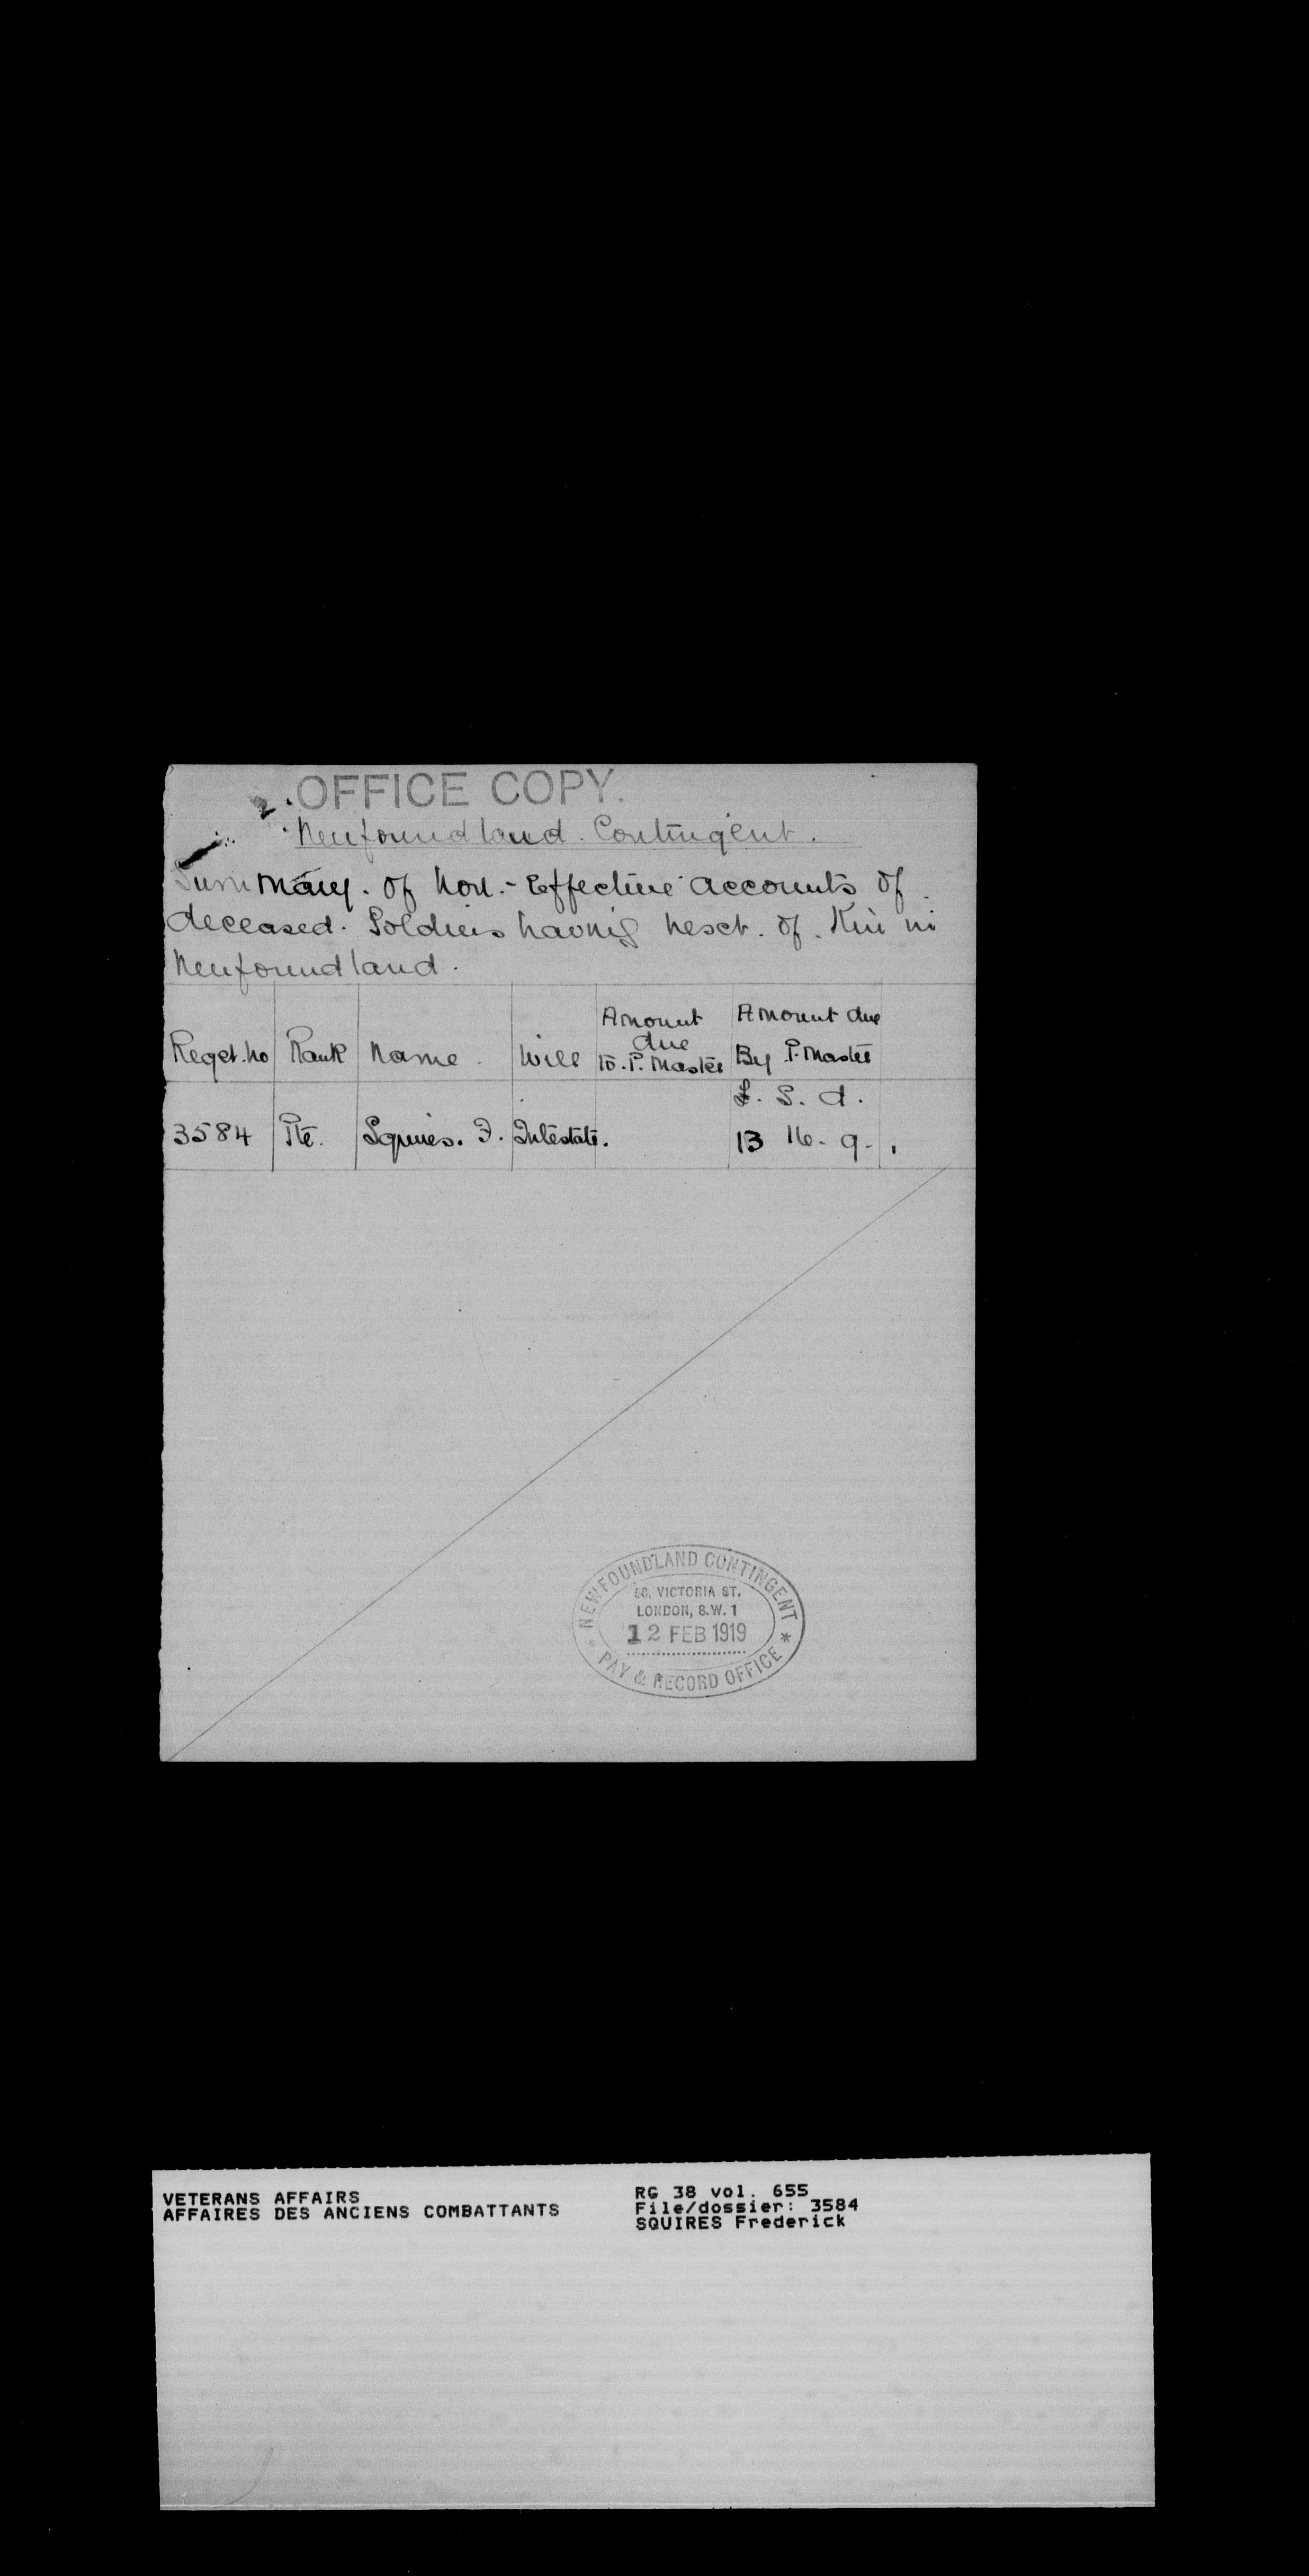 OFFICE COPY.
Newfoundland. Contingent.
Summary. of Non.-Effective accounts of
deceased. Soldiers having next. of. Kin in
Newfoundland.
Regt. No Rank Name. Will Amount due to. P. Master Amount due By P. Master
£. S. d.
3584 Pte. Squires. F. Intestate. 13 16. 9.
NEWFOUNDLAND CONTINGENT
58, VICTORIA ST.
LONDON, S.W. 1
12 FEB 1919
PAY & RECORD OFFICE
VETERANS AFFAIRS
AFFAIRES DES ANCIENS COMBATTANTS
RG 38 vol. 655
File/dossier: 3584
SQUIRES Frederick